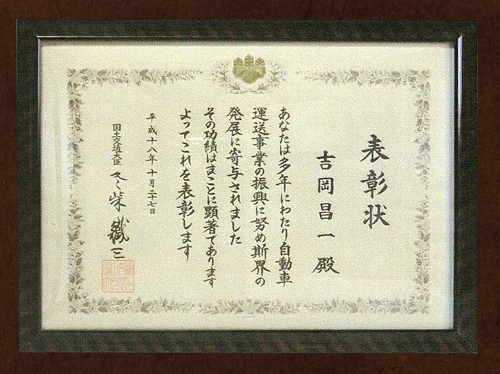 表彰状
吉岡昌一殿
あなたは多年にわたり自動車
運送事業の振興に努め斯界の
発展に寄与されました
その功績はまことに顕著であります
よってこれを表彰します
平成十八年十月二十七日
国土交通大臣 冬柴鐵三